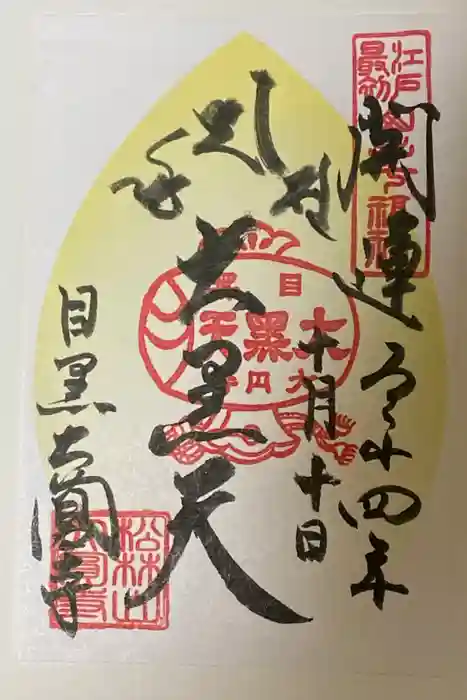 開運
令和四年
十月十日
大黒天
目黒大圓寺
江戸山手七福神
最初
目黒
大黒天
大円寺
松林山
大圓寺